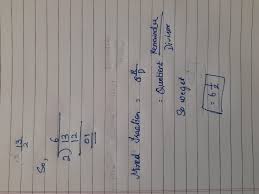 = 13/2
So,
6
2) 13
12
01
Mixed fraction = Q R/D
= Quotient Remainder/Divisor
So we get
= 6 1/2